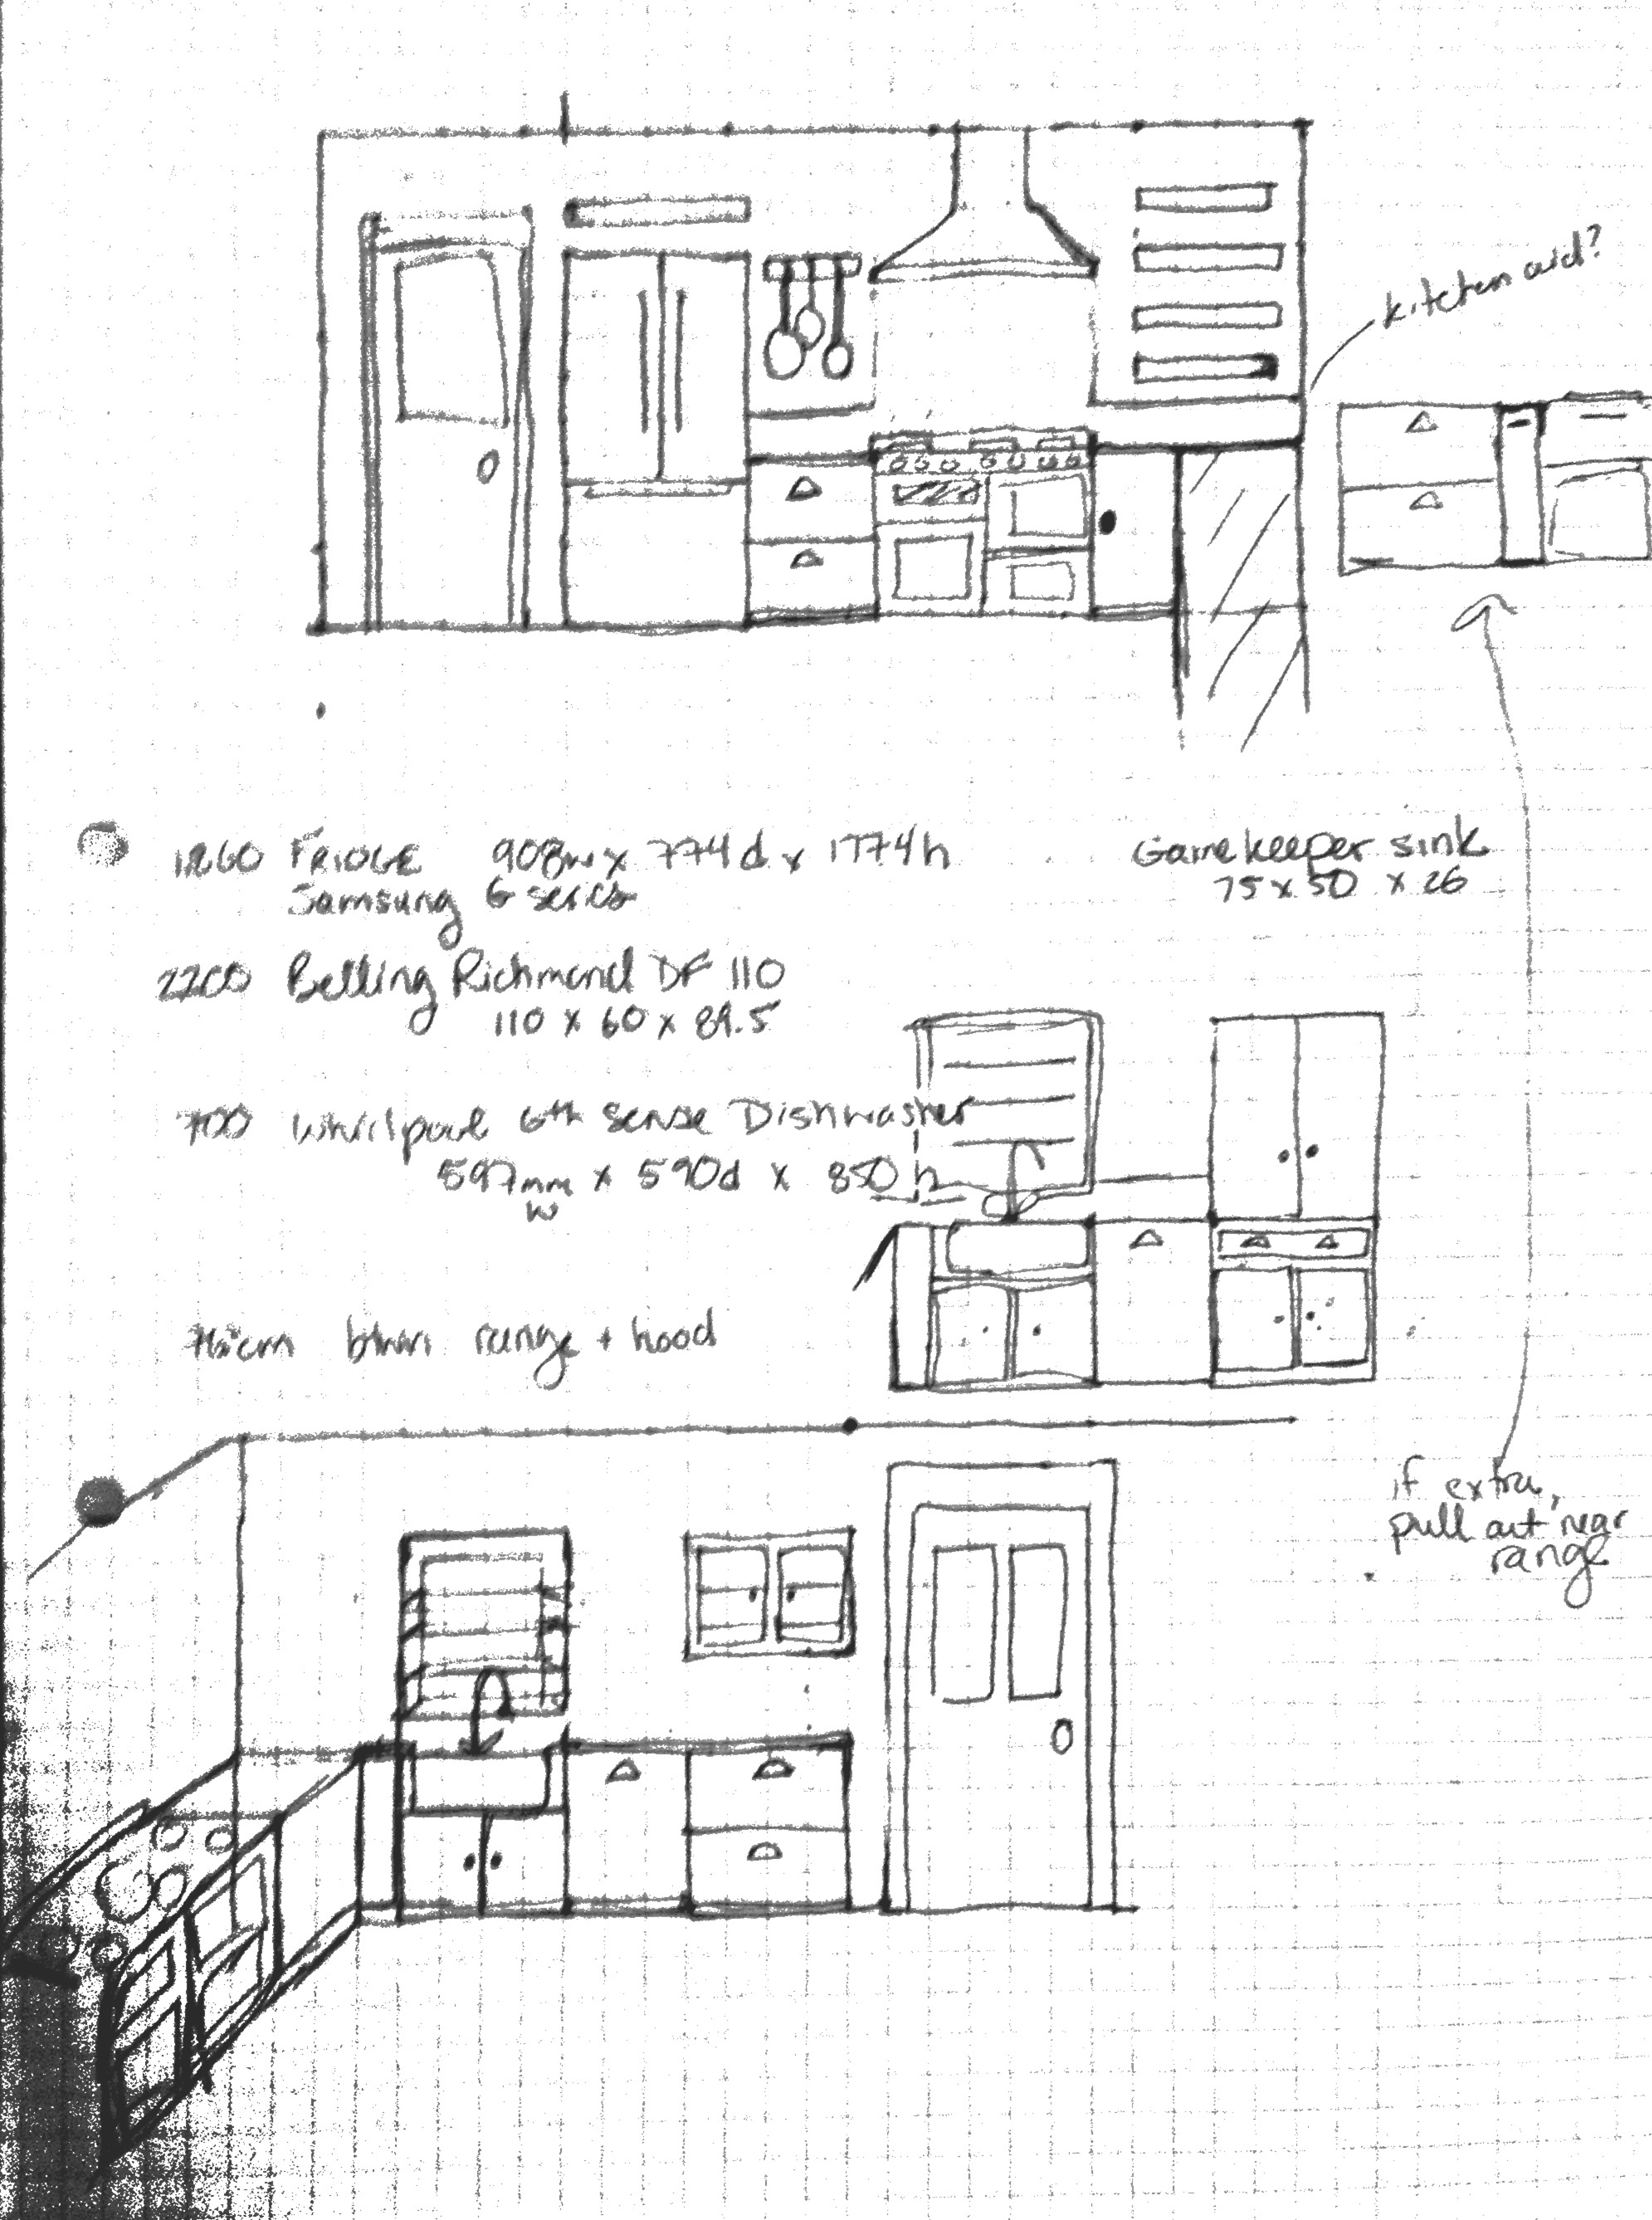 kitchen aid?
1260 FRIDGE 908w x 774d x 1774h
Samsung G series
Gamekeeper sink
75 x 50 x 26
2200 Belling Richmond DF 110
110 x 60 x 89.5
700 Whirlpool 6th Sense Dishwasher
597mm x 590d x 850h
w
btwn range + hood
if extra,
pull out near
range